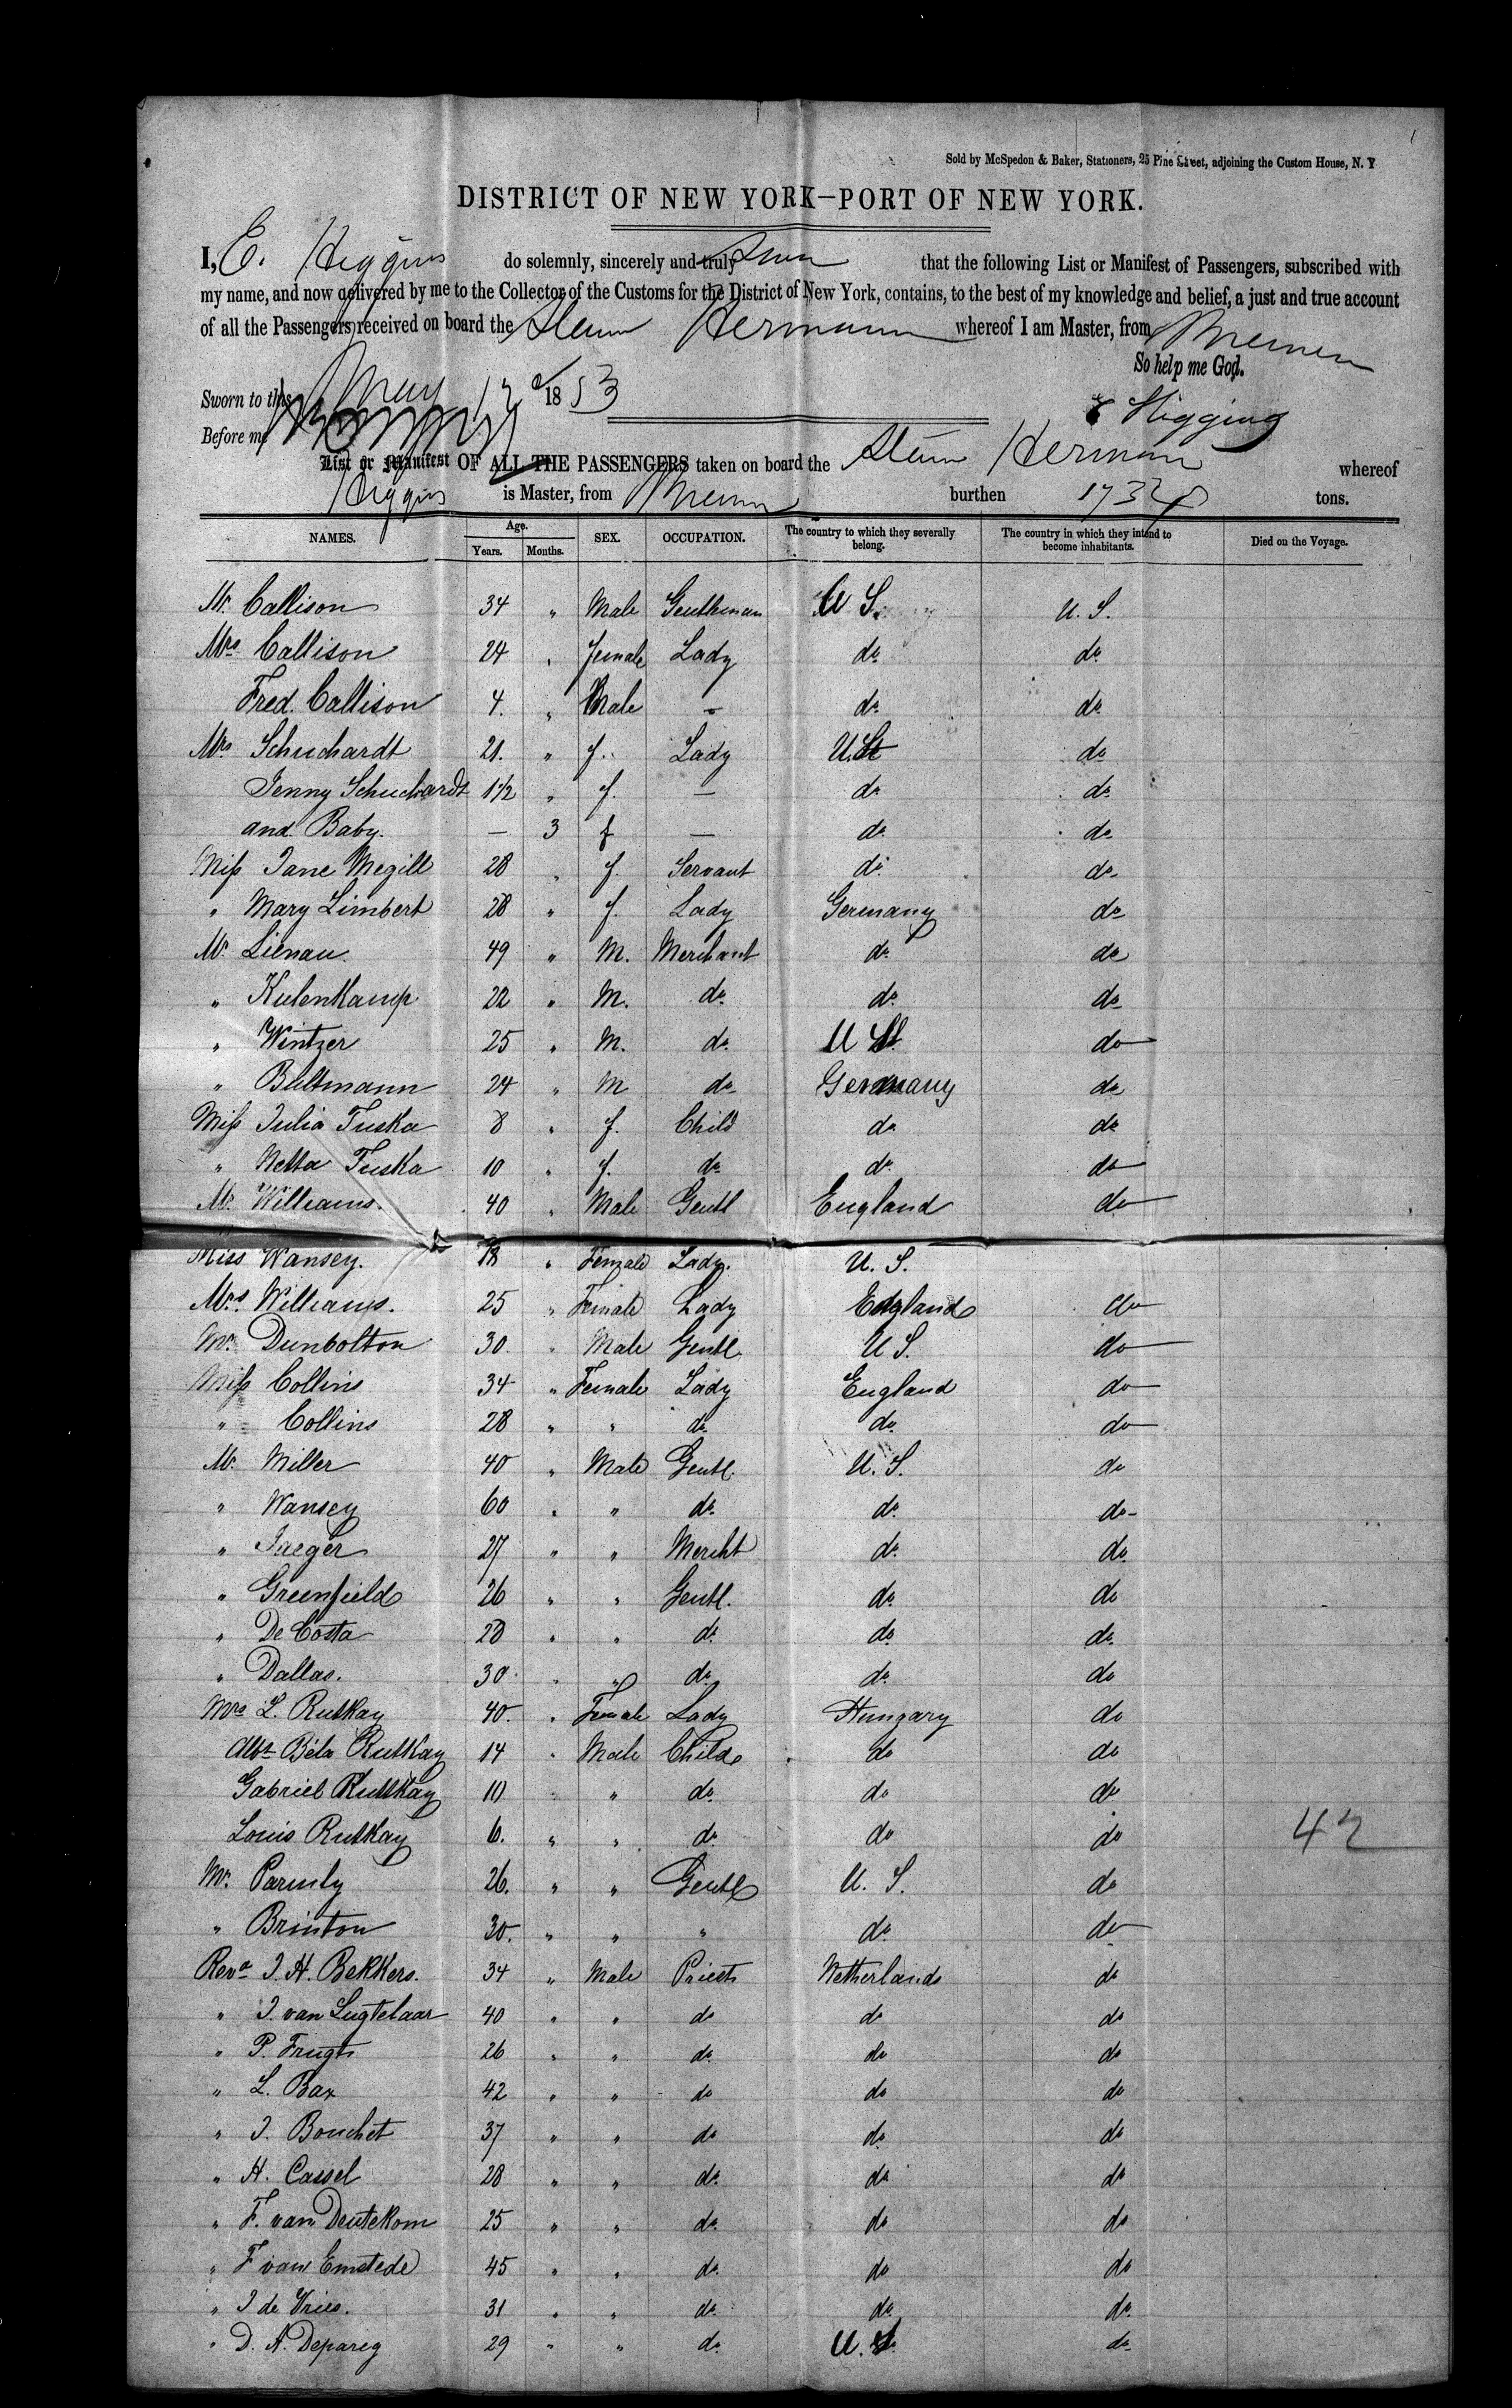 Sold by McSpedon & Baker, Stationers, 25 Pine Street, adjoining the Custom House, N. Y
DISTRICT OF NEW YORK—PORT OF NEW YORK.
I, E. Higgins do solemnly, sincerely and truly that the following List or Manifest of Passengers, subscribed with
my name, and now delivered by me to the Collector of the Customs for the District of New York, contains, to the best of my knowledge and belief, a just and true account
of all the Passengers received on board the Steam Hermann whereof I am Master, from Bremen
So help me God.
Sworn to this May 12 1853
E Higgins
Before me
List or Manifest OF ALL THE PASSENGERS taken on board the Steam Herman whereof
Higgins is Master, from Bremen burthen 1732 tons.
NAMES. Age. SEX. OCCUPATION. The country to which they severally belong. The country in which they intend to become inhabitants. Died on the Voyage.
Years. Months.
Mr. Callison 34 " Male Gentleman U S. U. S.
Mrs Callison 24 " female Lady do do
Fred. Callison 4. " Male - do do
Mrs Schuchardt 21. " f. Lady U.St do
Jenny Schuchardt 1 1/2 " f. — do do
and Baby. — 3 f — do do
Miss Jane Megill 28 " f. Servant do do
" Mary Limbert 28 " f. Lady Germany do
Mr. Lienau. 49 " M. Merchant do do
" Kulenkamp 22 " M. do do do
" Wintzer 25 " M. do U St do
" Bultmann 24 " M do Germany do
Miss Julia Tuska 8 " f. Child do do
" Netta Tuska 10 " f. do do do
Mr. Williams. 40 " Male Gentl England do
Miss Wansey. 18 " Female Lady. U. S.
Mrs. Williams. 25 " Female Lady England do
Mr. Dunbolton 30. " Male Gentl. U S. do
Miss Collins 34 " Female Lady England do
" Collins 28 " " do do do
Mr. Miller 40 " Male Gentl. U. S. do
" Wansey 60 " " do do do
" Jaeger 27 " " Mercht do do
" Greenfield 26 " " Gentl. do do
" De Costa 28 " " do do do
" Dallas. 30. " " do do do
Mrs L. Rutkay 40. " Female Lady Hungary do
Béla Rutkay 14 " Male Child do do
Gabriel Ruttkay 10 " " do do do
Louis Rutkay 6. " " do do do 42
Mr. Parmly 26. " " Gentl U. S. do
" Brinton 30. " " " do do
Revd J. H. Bekkers. 34 " Male Priest Netherlands do
" J. van Lugtelaar 40 " " do do do
" P. Frugt 26 " " do do do
" L. Bax 42 " " do do do
" J. Bouchet 37 " " do do do
" H. Cassel 28 " " do do do
" F. van Deutekom 25 " " do do do
" F van Emstede 45 " " do do do
" J de Vries. 31 " " do do do
" D. A. Deparcy 29 " " do U. S. do